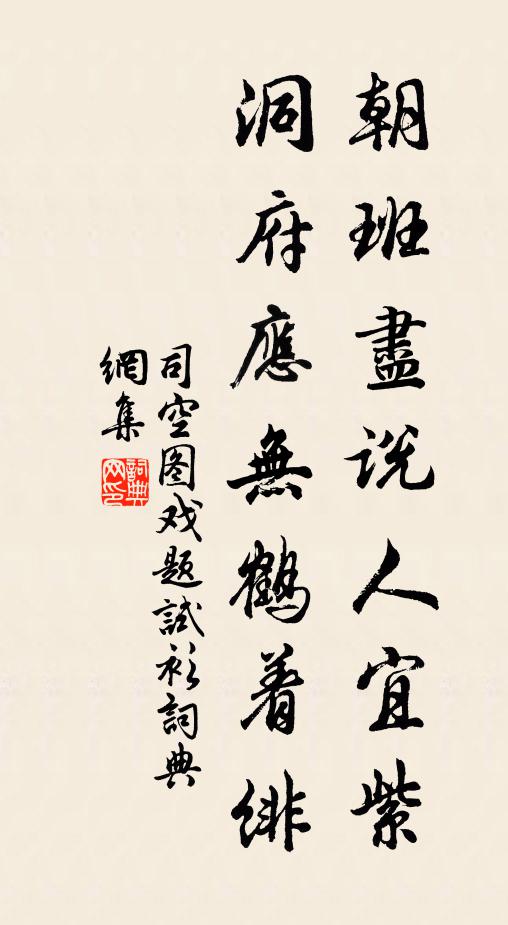 朝班盡説人宜紫
洞府應無鶴着緋
司空图戏题試衫詞典
網集
詞典网印